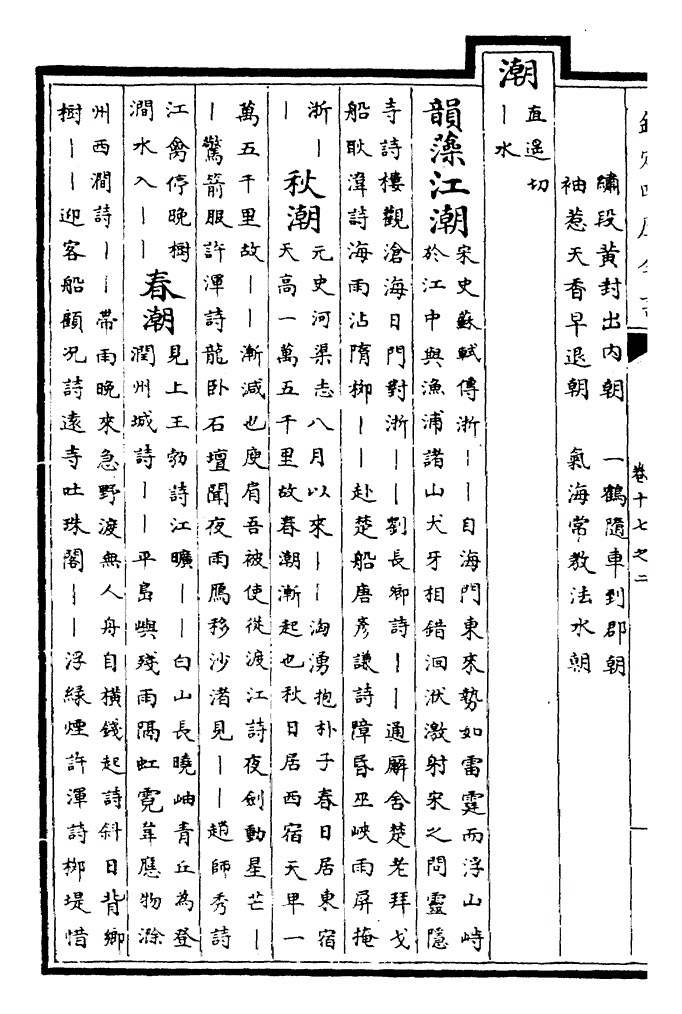 欽定四庫全書 卷十七之二
繡段黃封出內朝 一鶴隨車到郡朝
袖惹天香早退朝 氣海常教法水朝
潮
直遙切
｜水
韻藻江潮
宋史蘇軾傳浙｜｜自海門東來勢如雷霆而浮山峙
於江中與漁浦諸山犬牙相錯洄洑激射宋之問靈隱
寺詩樓觀滄海日門對浙｜｜劉長卿詩｜｜通廨舍楚老拜戈
船耿湋詩海雨沾隋柳｜｜赴楚船唐彥謙詩障昏巫峽雨屏掩
浙｜
｜
秋潮
元史河渠志八月以來｜｜洶湧抱朴子春日居東宿
天高一萬五千里故春潮漸起也秋日居西宿天卑一
萬五千里故｜｜漸減也庾肩吾被使從渡江詩夜劍動星芒｜
｜驚箭服許渾詩龍臥石壇聞夜雨鴈移沙渚見｜｜趙師秀詩
江禽停晚樹
澗水入｜｜
春潮
見上王勃詩江曠｜｜白山長曉岫青丘為登
潤州城詩｜｜平島嶼殘雨隔虹霓韋應物滁
州西澗詩｜｜帶雨晚來急野渡無人舟自橫錢起詩斜日背鄉
樹｜｜迎客船顧況詩遠寺吐珠閣｜｜浮緑煙許渾詩柳堤惜